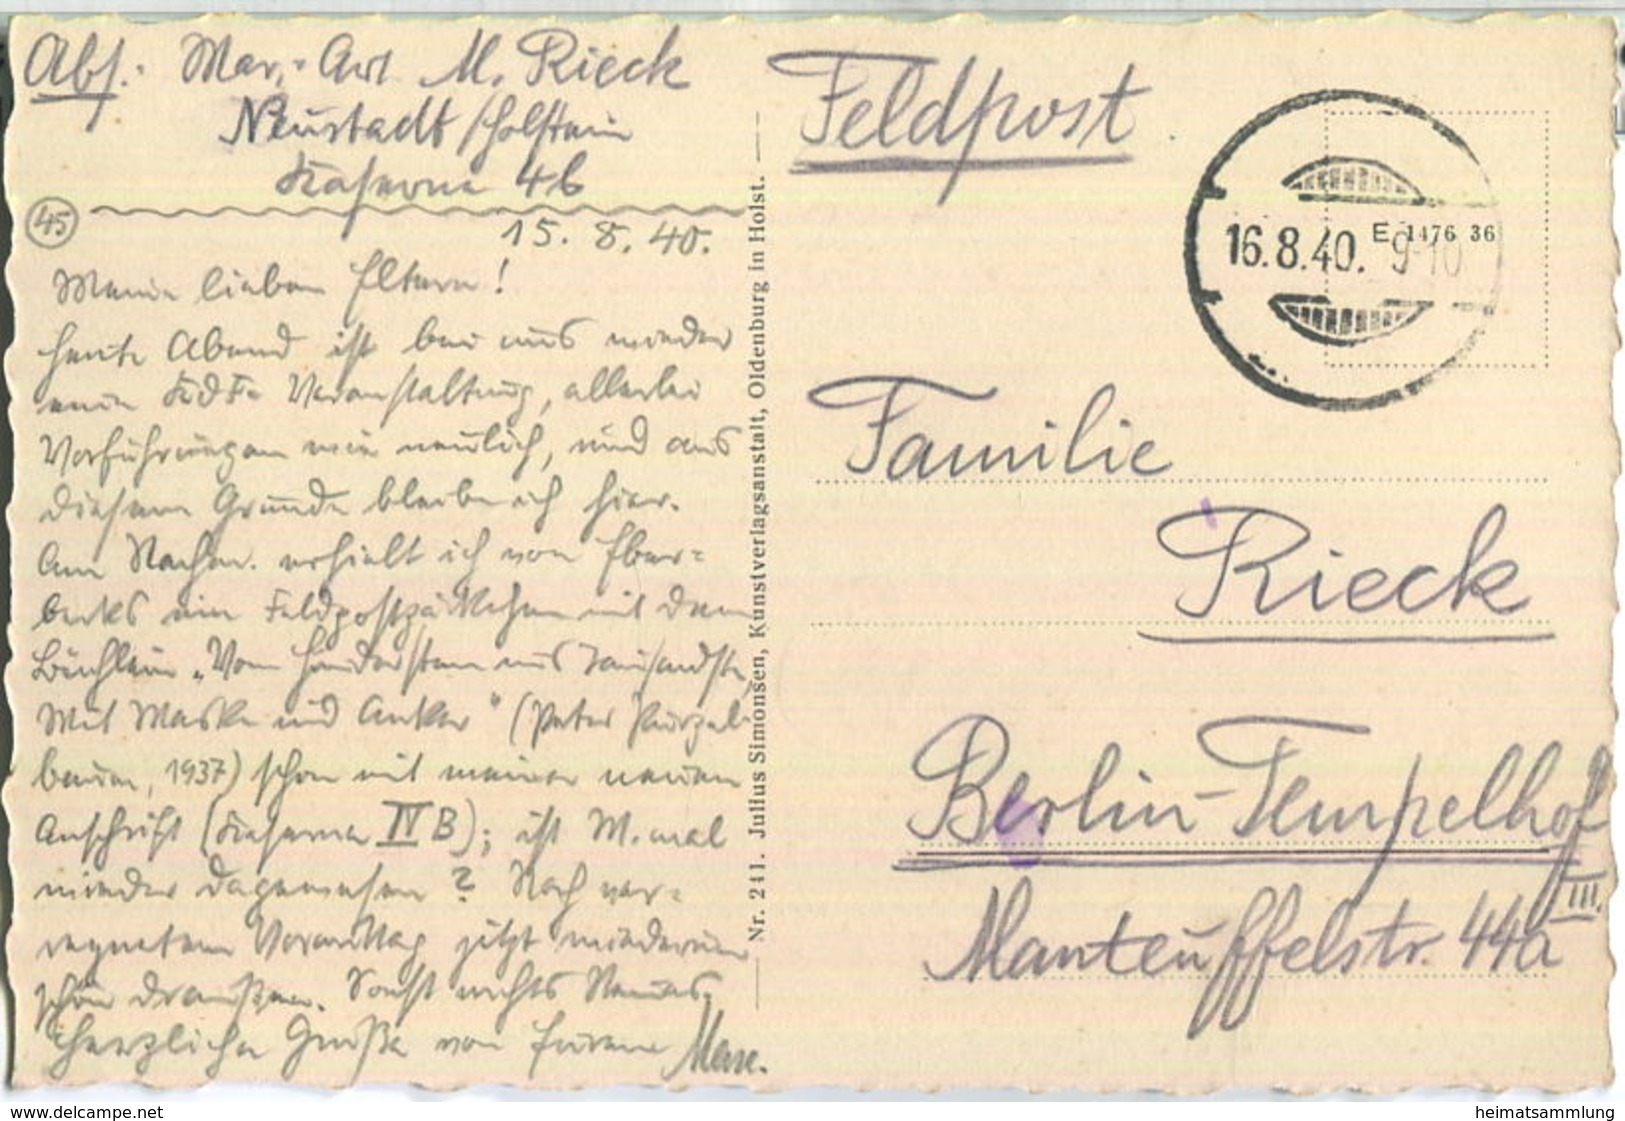 Abs.: Mar.-Art M. Rieck
Neustadt/Holstein
Kaserne 4b
45
15. 8. 40.
Meine lieben Eltern!
heute Abend ist bei uns wieder
eine KdF= Veranstaltung, allerlei
Vorführungen wie neulich, und aus
diesem Grunde bleibe ich hier.
Am Nachm. erhielt ich von Eber=
becks ein Feldpostpäckchen mit dem
Büchlein „Vom Hundersten ins Tausendste,
Mit Maske und Anker" (Peter Purzel
baum, 1937) schon mit meiner neuen
Anschrift (Kaserne IV B); ist M. mal
wieder dagewesen? Nach ver=
regnetem Vormittag jetzt wiederum
schön draußen. Sonst nichts Neues.
Herzliche Grüße von Eurem
Nr. 241. Julius Simonsen, Kunstverlagsanstalt, Oldenburg in Holst.
Feldpost
16.8.40. 9-10
E 1476 36
Familie
Rieck
Berlin-Tempelhof
Manteuffelstr. 44a III.
www.delcampe.net
heimatsammlung